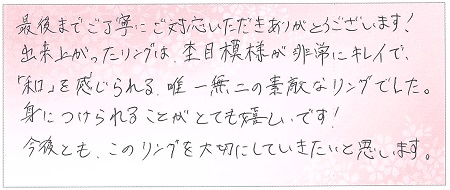 最後までご丁寧にご対応いただきありがとうございます!
出来上がったリングは、杢目模様が非常にキレイで、
「和」を感じられる、唯一無二の素敵なリングでした。
身につけられることがとても嬉しいです!
今後とも、このリングを大切にしていきたいと思います。